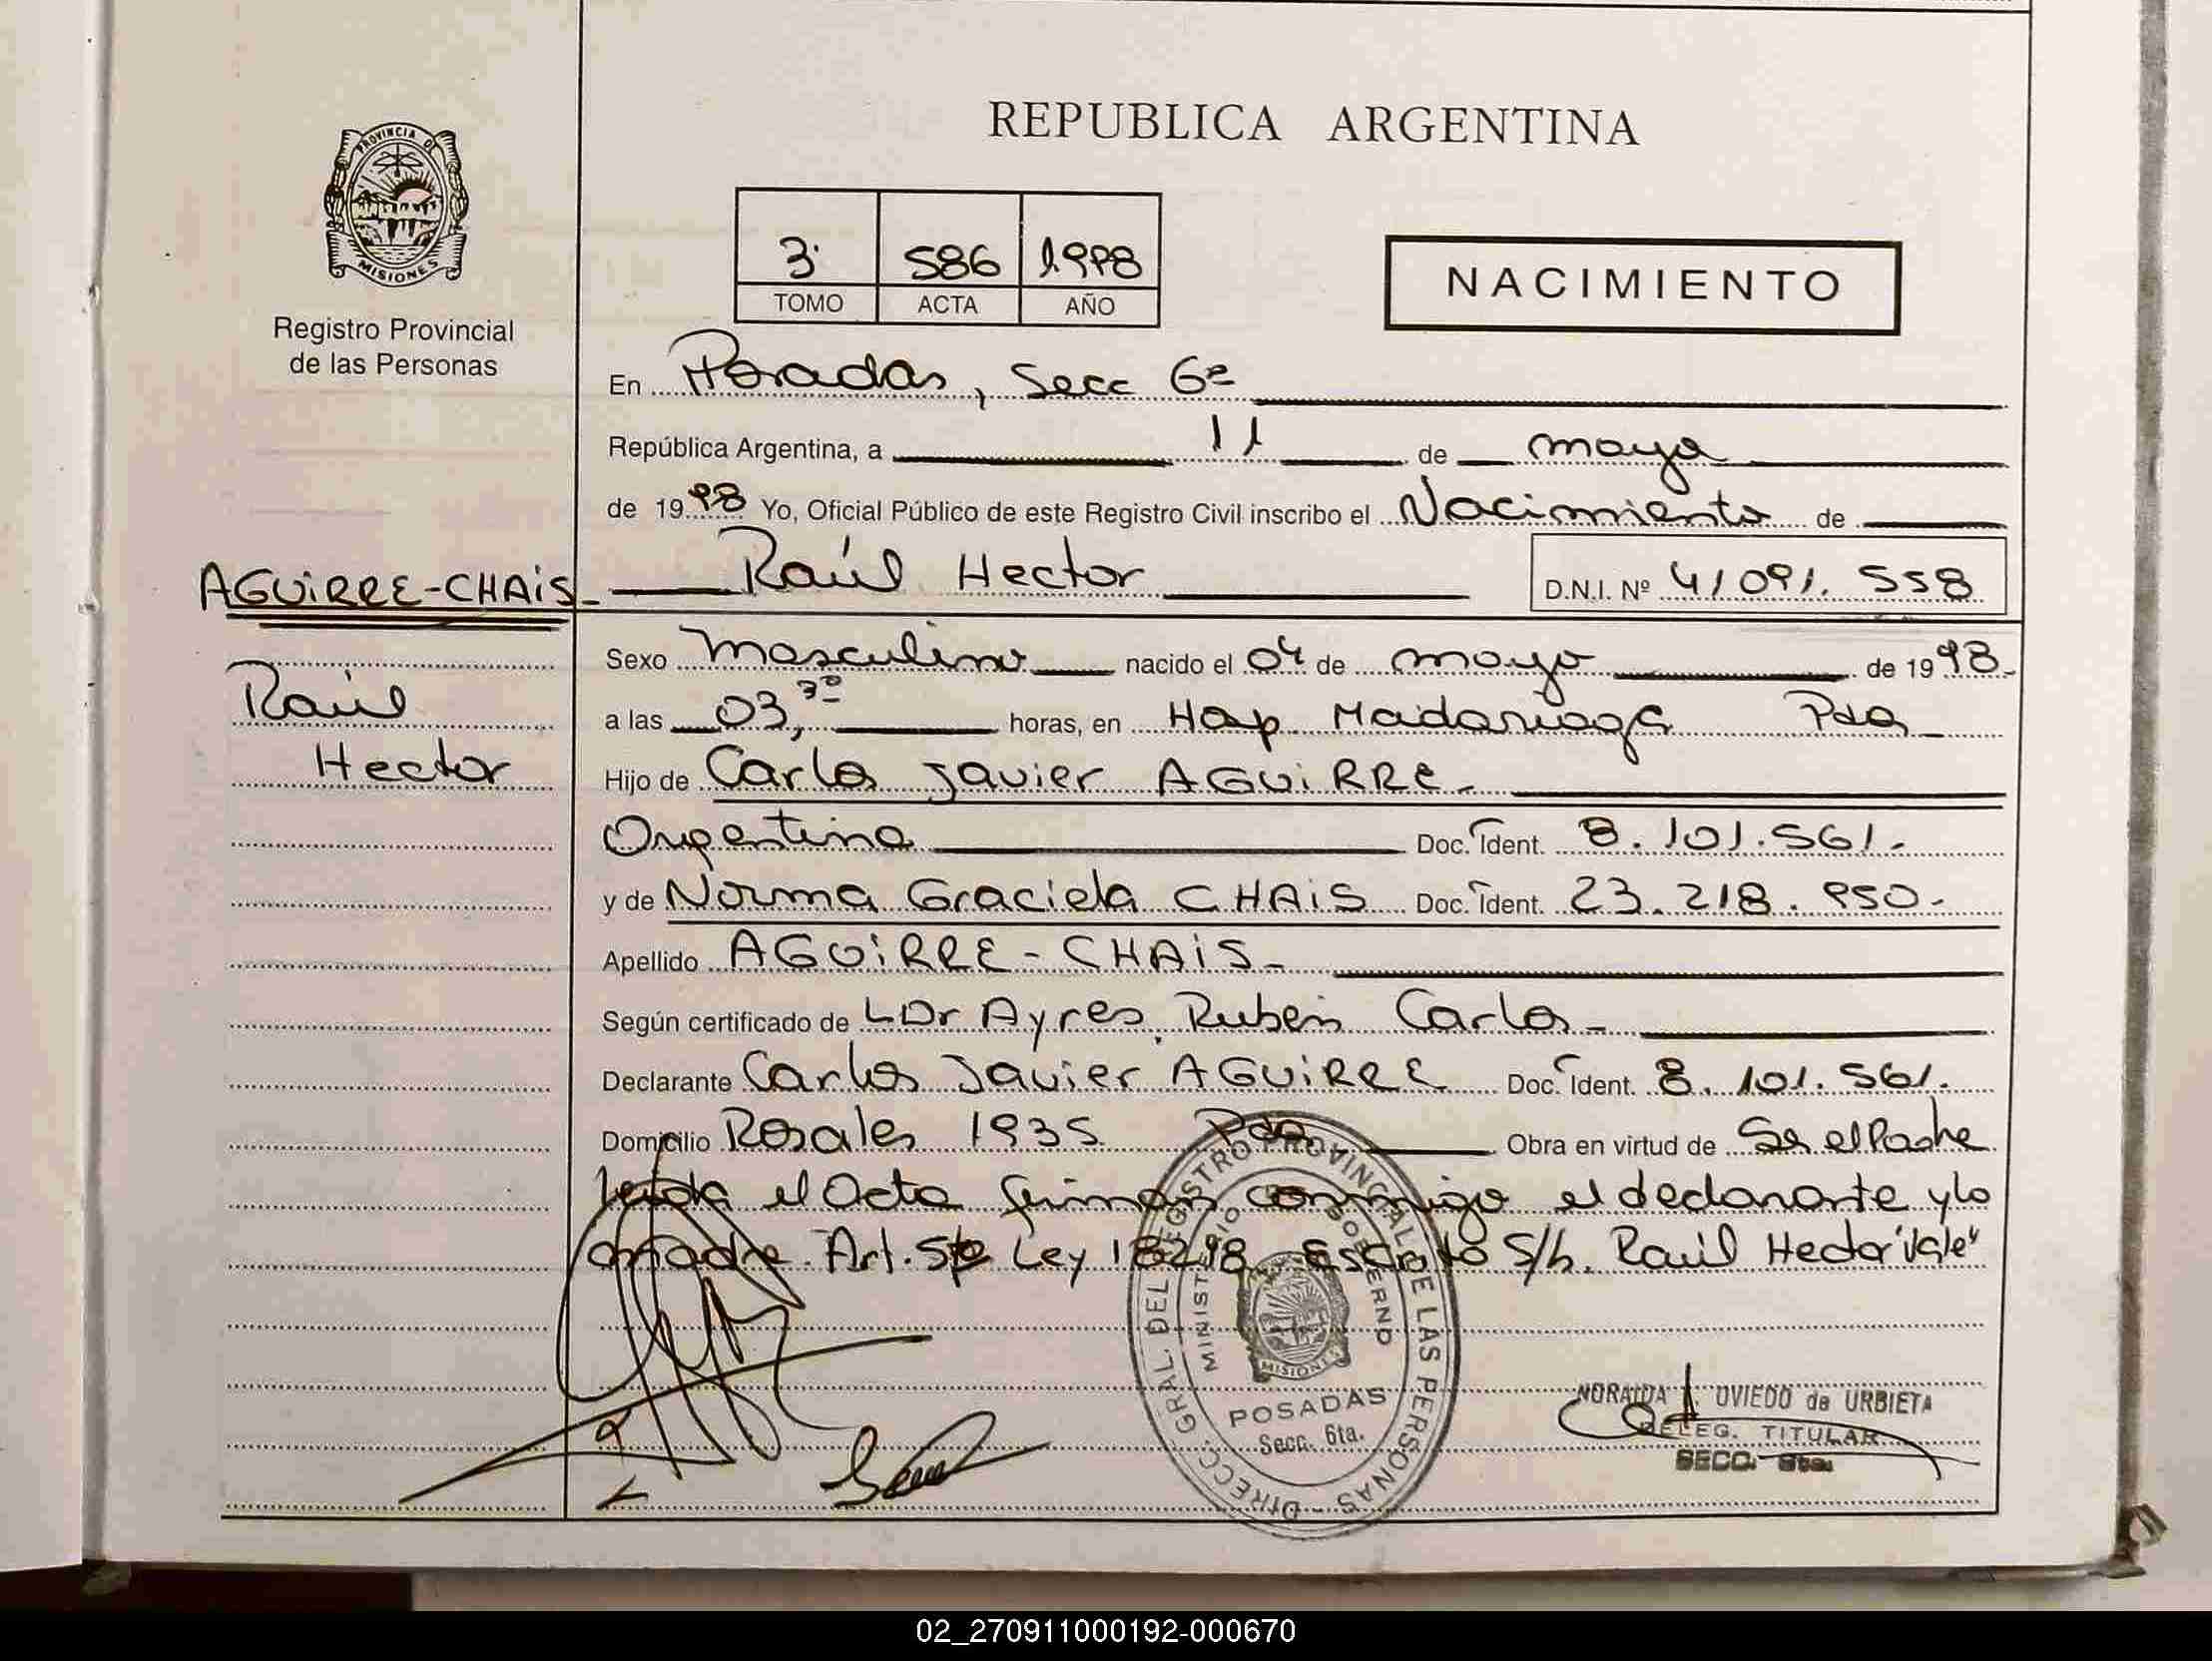 REPUBLICA ARGENTINA
PROVINCIA DE
MISIONES
Registro Provincial
de las Personas
3 586 1998
TOMO ACTA AÑO
NACIMIENTO
En Posadas, Secc 6ª
República Argentina, a 11 de mayo
de 1998 Yo, Oficial Público de este Registro Civil inscribo el Nacimiento de
AGUiRRE-CHAiS
Raúl Hector D.N.I. Nº 41091.558
Raúl
Hector
Sexo Masculino nacido el 04 de mayo de 1998.
a las 03,30 horas, en Hosp. Madariaga Pdas
Hijo de Carlos Javier AGUiRRE.
Argentina Doc. Ident. 8.101.561.
y de Norma Graciela CHAiS Doc. Ident. 23.218.950.
Apellido AGUiRRE-CHAiS
Según certificado de Dr Ayres, Ruben Carlos
Declarante Carlos Javier AGUiRRE Doc. Ident. 8.101.561.
Domicilio Rosales 1935 Pdas Obra en virtud de Ser el Padre
Leida el Acta firman conmigo el declarante y la
madre. Art. 5to Ley 18248 Escrito S/b. Raúl Hector "Vale"
DIRECC. GRAL. DEL REGISTRO PROVINCIAL DE LAS PERSONAS
MINISTERIO GOBIERNO
MISIONES
POSADAS
Secc. 6ta.
NORAIDA OVIEDO de URBIETA
DELEG. TITULAR
SECC. 6ta.
02_270911000192-000670